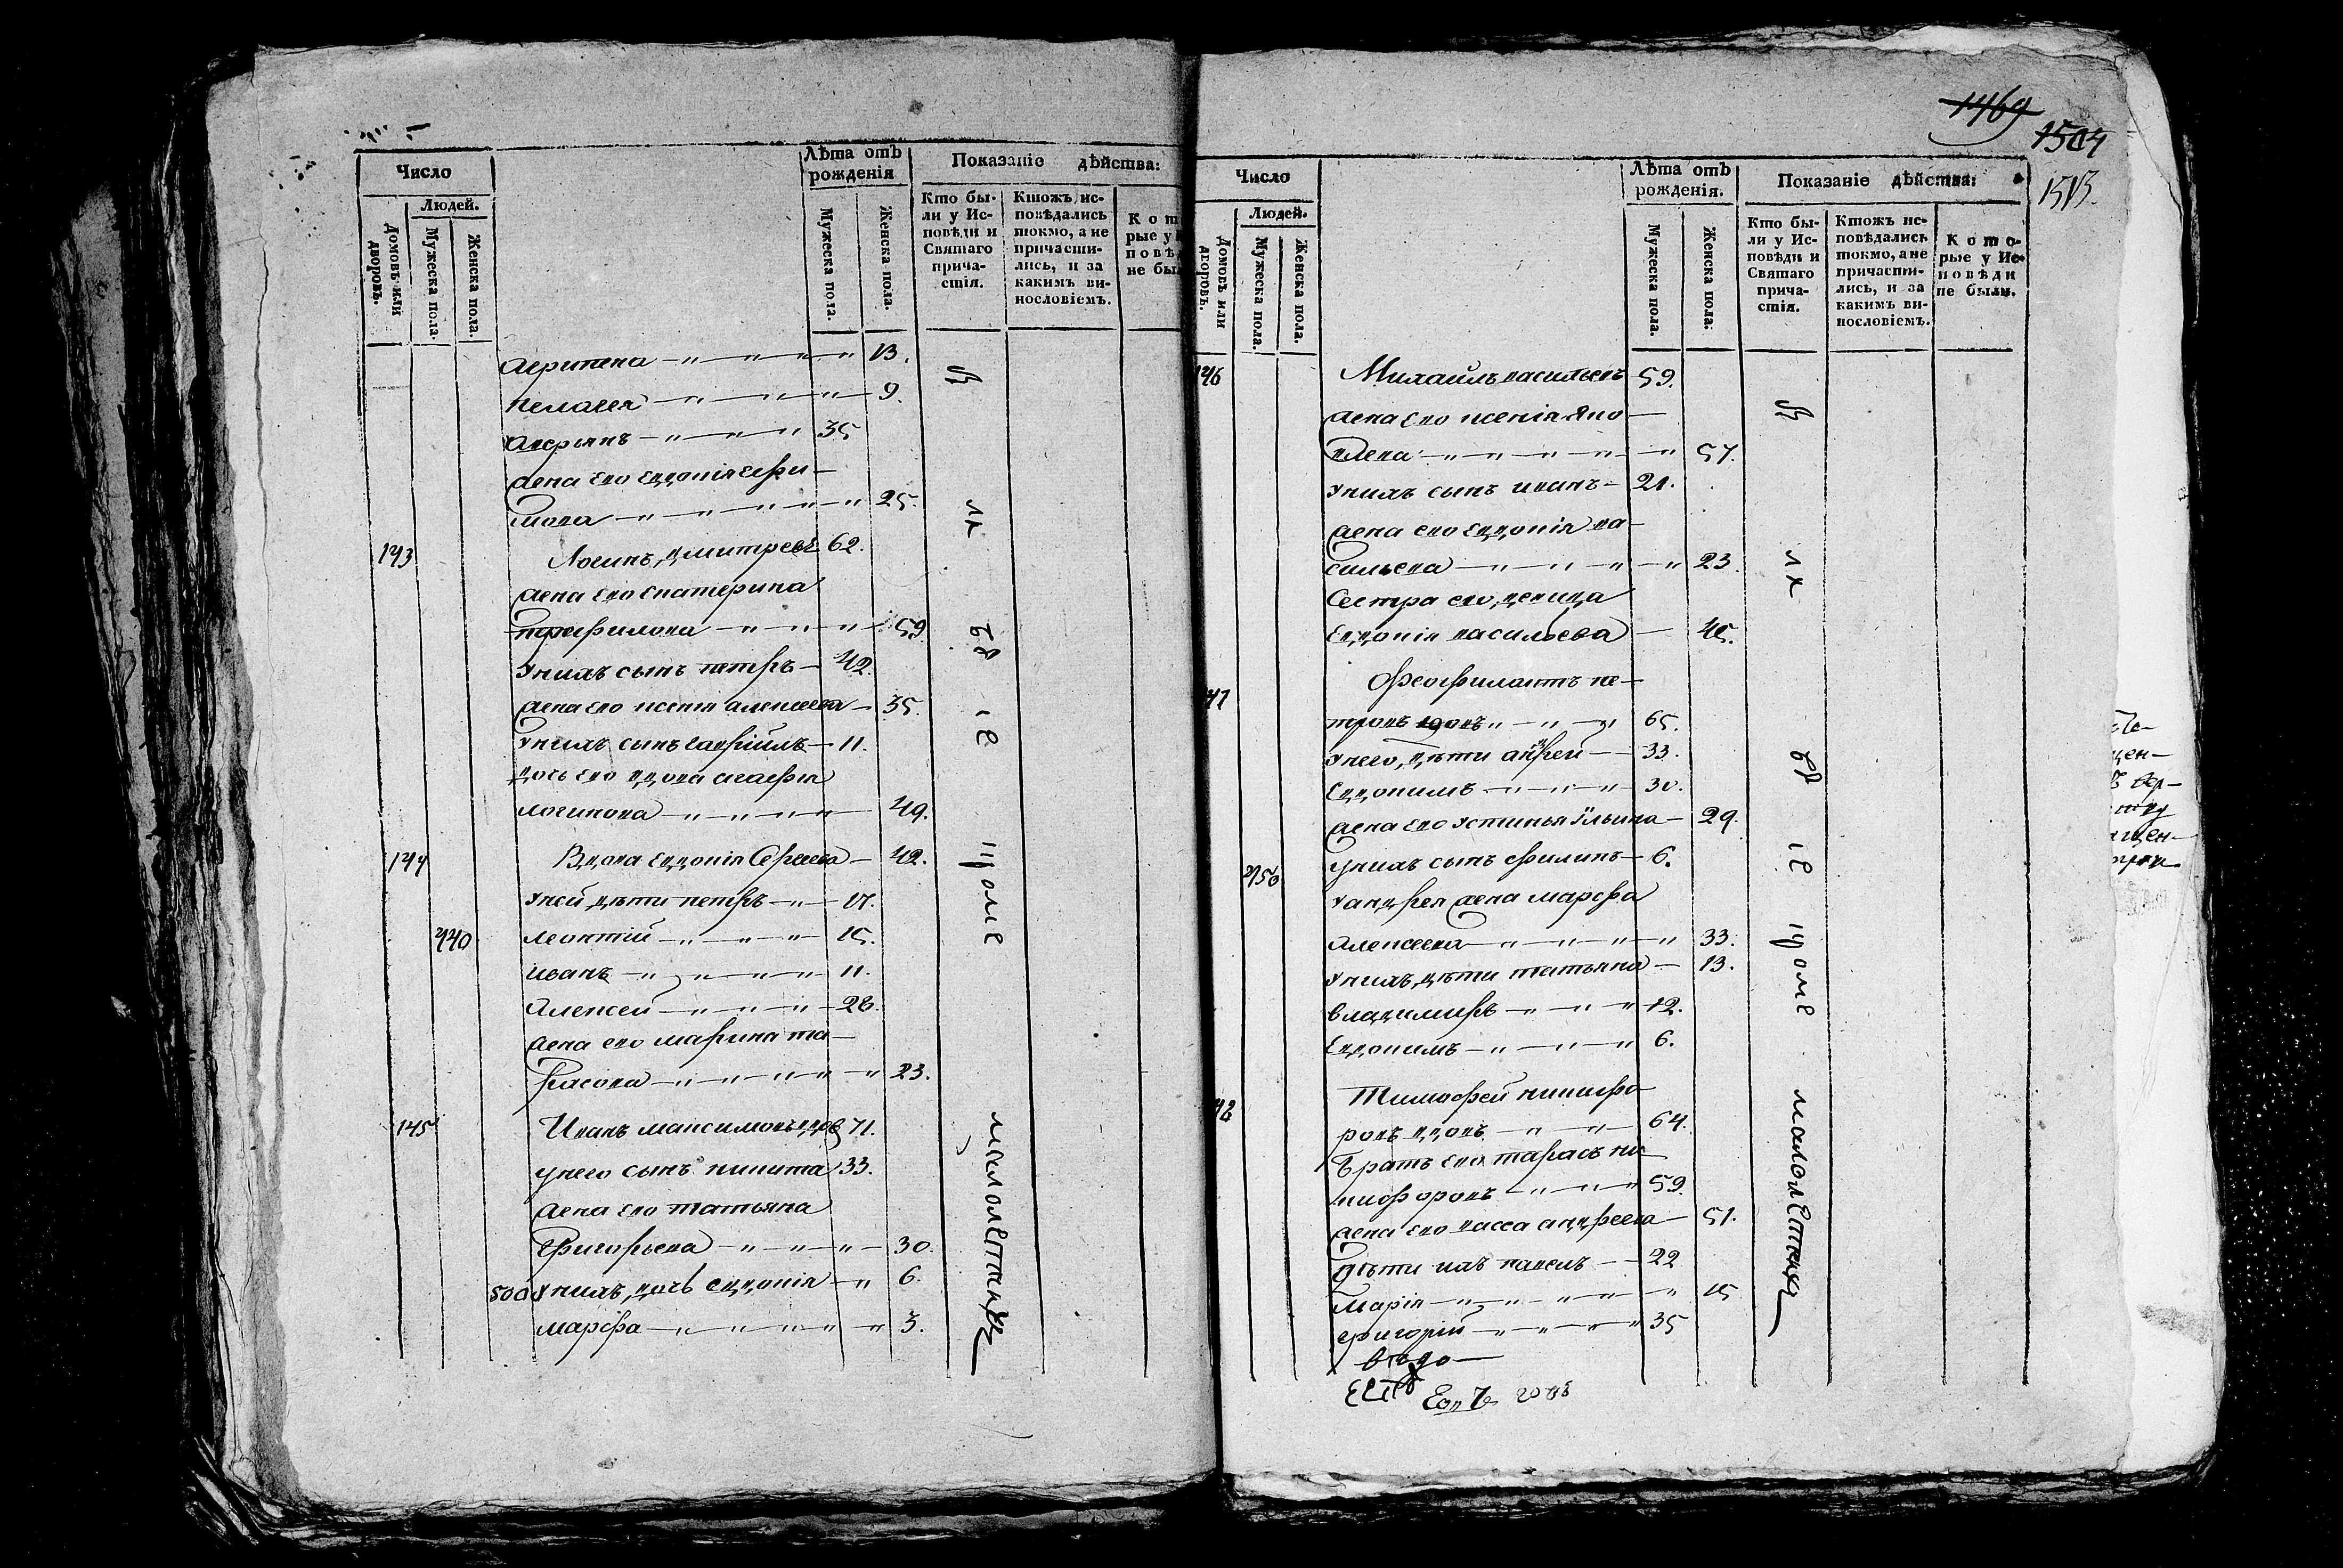 Число
Лѣта отъ рожденія
Показаніе дѣйства:
Людей.
Домовъ или дворовъ.
Мужеска пола.
Женска пола.
Мужеска пола.
Женска пола.
Кто были у Исповѣди и Святаго причастія.
Ктожъ исповѣдались токмо, а не причастились, и за какимъ винословіемъ.
Агрипена 13.
Пелагея 9.
Аверьянъ 35
жена его Евдокія Ефи-
мова 25.
143 Логинъ Дмитревъ 62.
жена его Екатерина
трифилова 59
у нихъ сынъ петръ 42.
жена его ксения алексеева 35.
у нихъ сынъ гаврійлъ 11.
дочь его вдова агафья
логинова 49.
144 Вдова Евдокія Сергеева 42.
у ней дѣти петръ 17.
440 леонтій 15.
иванъ 11.
Алексей 28.
жена его марина та-
расова 23.
145 Иванъ максимовъ вдов 71.
у него сынъ никита 33.
жена его татьяна
Григорьева 30.
500 у нихъ дочь евдокія 6.
марфа 3.
малолетных
1469
1504
1513.
Число
Лѣта отъ рожденія.
Показаніе дѣйства:
Людей.
Домовъ или дворовъ.
Мужеска пола.
Женска пола.
Мужеска пола.
Женска пола.
Кто были у Исповѣди и Святаго причастія.
Ктожъ исповѣдались токмо, а не причастились, и за какимъ винословіемъ.
Которые у Исповѣди не были.
146 Михайлъ васильевъ 59.
жена его ксенія Яко-
влева 57.
у нихъ сынъ иванъ 21.
жена его евдокія ва-
сильева 23.
Сестра его девица
Евдокія васильева 45.
Феофилактъ пе-
тровъ вдовъ 65.
у него дѣти андрей 33.
Евдокимъ 30.
жена его устинья Ильина 29.
у нихъ сынъ филипъ 6.
450 у андрея жена марфа
Алексеева 33.
у нихъ дѣти татьяна 13.
владимиръ 12.
Евдокимъ 6.
Тимофей никифо
ровъ вдовъ 64.
братъ его тарасъ ни-
кифоровъ 59.
жена его васса андреева 51.
дѣти ихъ павелъ 22
Марія 15
григорій 35
малолетных